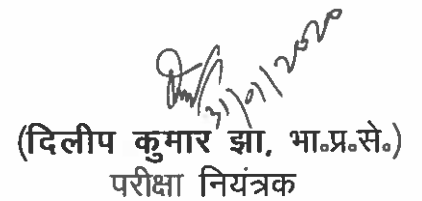 31/01/2020
(दिलीप कुमार झा, भा॰प्र॰से॰)
परीक्षा नियंत्रक